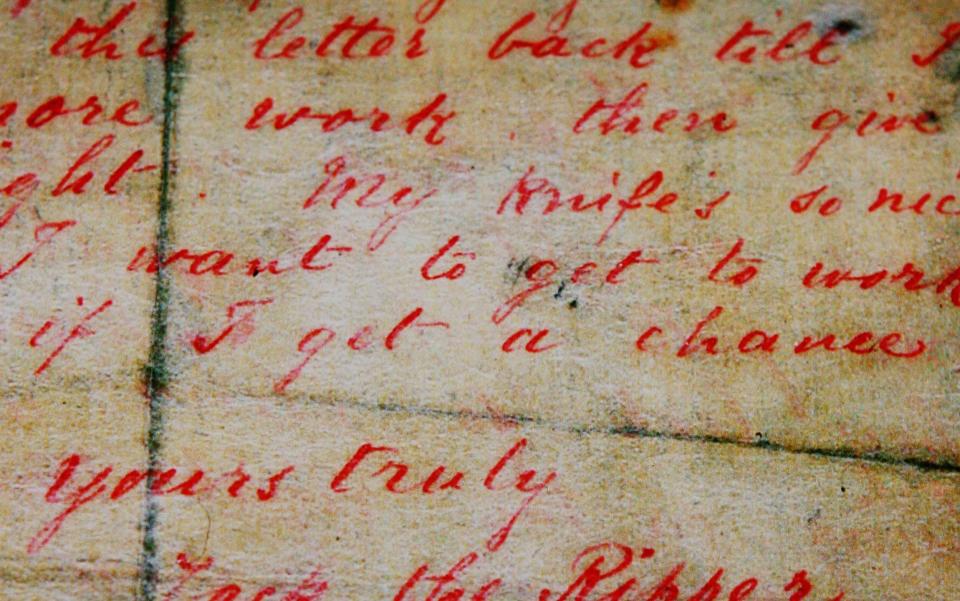 this letter back till I
more work. then give
ght. My knife's so nic
I want to get to work
if I get a chance
yours truly
Jack the Ripper